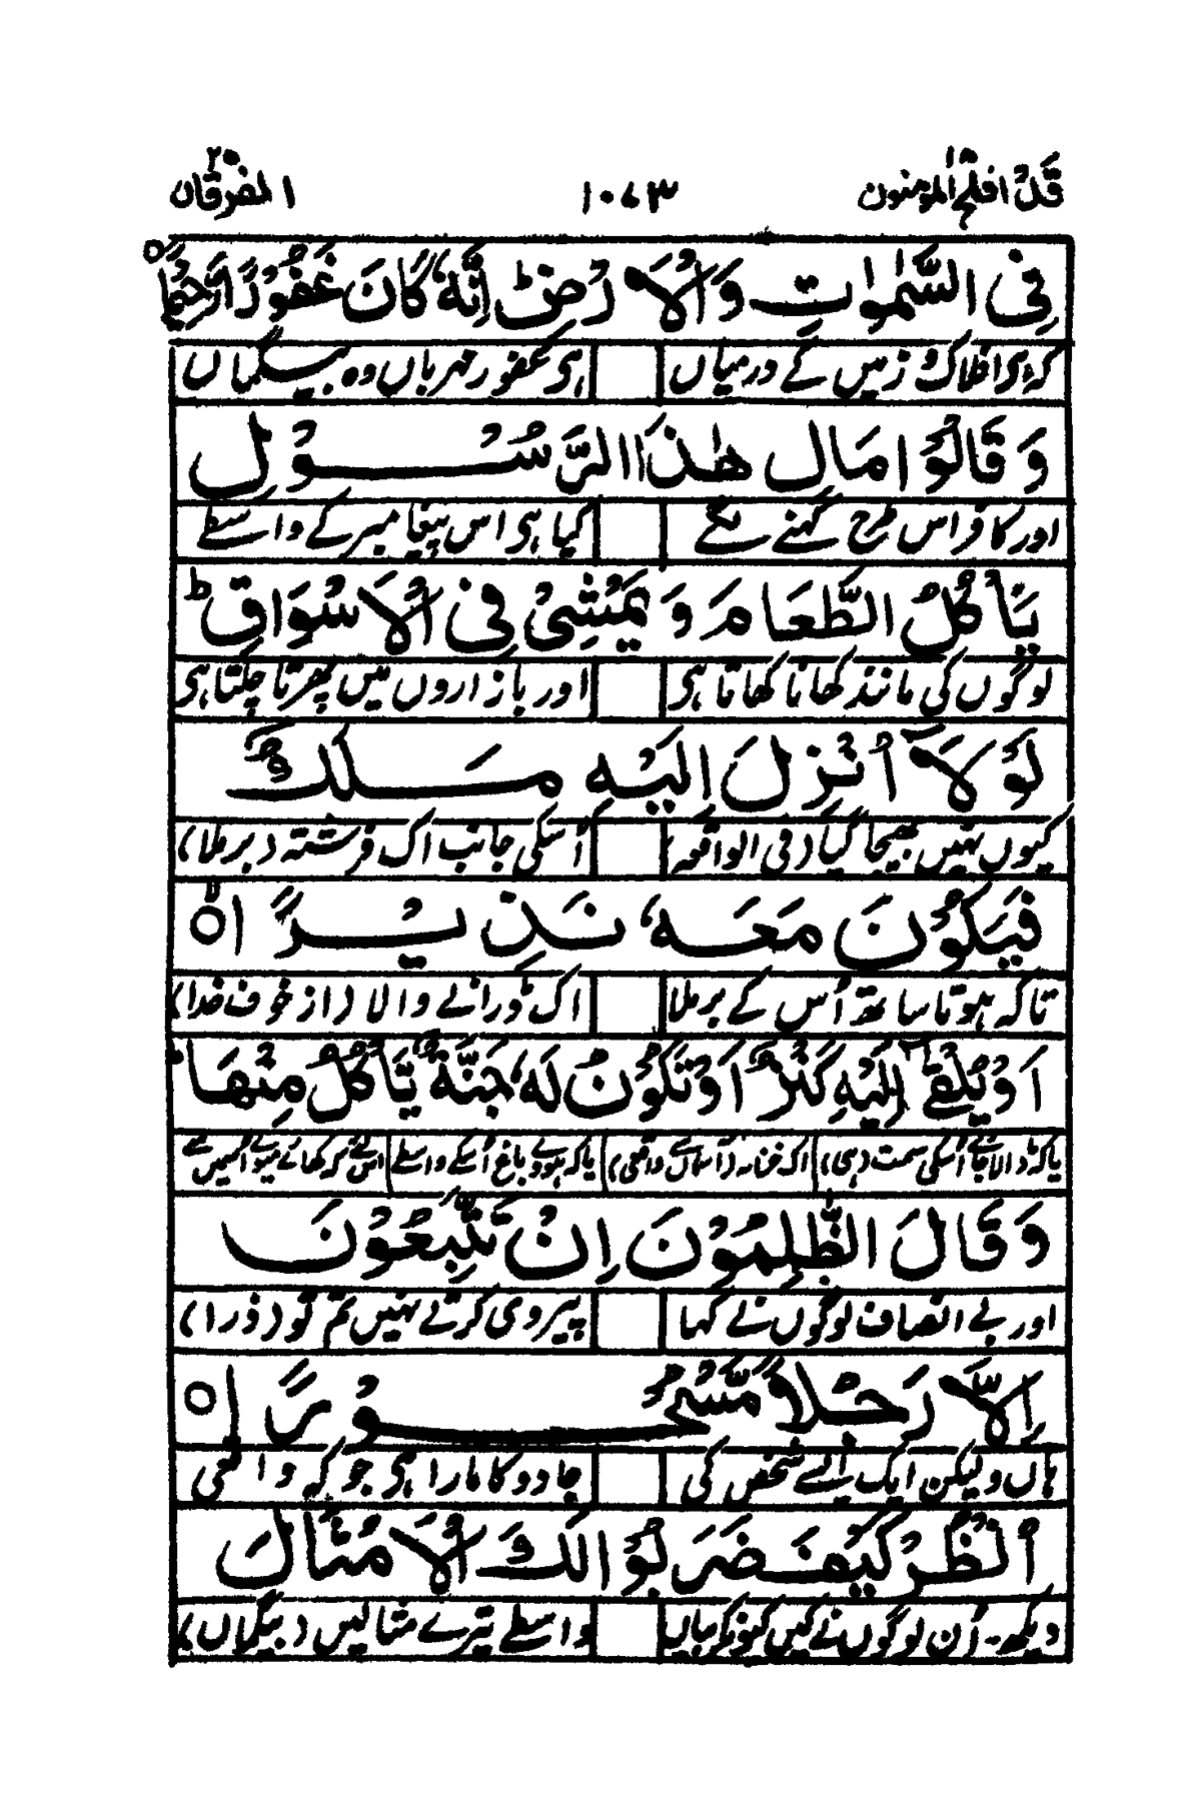 قَدْ افلح المؤمنون ١٨ ١٠٧٣ الفرقان ٢٥
فِی السَّمٰوٰتِ وَالْاَرْضِ ؕ اِنَّهٗ كَانَ غَفُوْرًا رَّحِیْمًا ○
کہ ہی افلاک و زمیں کے درمیاں ہی غفور و مہرباں وہ بیگماں
وَ قَالُوْا مَالِ هٰذَا الرَّسُوْلِ
اور کافر اس طرح کہنے لگے کیا ہی اس پیغامبر کے واسطے
یَاْكُلُ الطَّعَامَ وَ یَمْشِیْ فِی الْاَسْوَاقِ ؕ
لوگوں کی مانند کھانا کھاتا ہی اور بازاروں میں پھرتا چلتا ہی
لَوْ لَاۤ اُنْزِلَ اِلَیْهِ مَلَكٌ
کیوں نہیں بھیجا گیا (فی الواقعہ) اُسکی جانب اک فرشتہ (برملا)
فَیَكُوْنَ مَعَهٗ نَذِیْرًا ○
تاکہ ہوتا ساتھ اُس کے برملا اک ڈورانے والا (از خوف خدا)
اَوْ یُلْقٰۤی اِلَیْهِ كَنْزٌ اَوْ تَكُوْنُ لَهٗ جَنَّةٌ یَّاْكُلُ مِنْهَا ؕ
یا کہ ڈالا جائے اُسکی سمت (ہی) اک خزانہ (آسماں سے واقعی) یا کہ ہووے باغ اُسکے واسطے کہ کھائے میوے
وَ قَالَ الظّٰلِمُوْنَ اِنْ تَتَّبِعُوْنَ
اور بے انصاف لوگوں نے کہا پیروی کرتے نہیں تم تو (ذرا)
اِلَّا رَجُلًا مَّسْحُوْرًا ○
ہاں ولیکن ایک ایسے شخص کی جادو کا مارا ہی جو کہ واقعی
اُنْظُرْ كَیْفَ ضَرَبُوْا لَكَ الْاَمْثَالَ
دیکھ اُن لوگوں نے کیں کیونکر بیاں واسطے تیرے مثالیں (بیگماں)